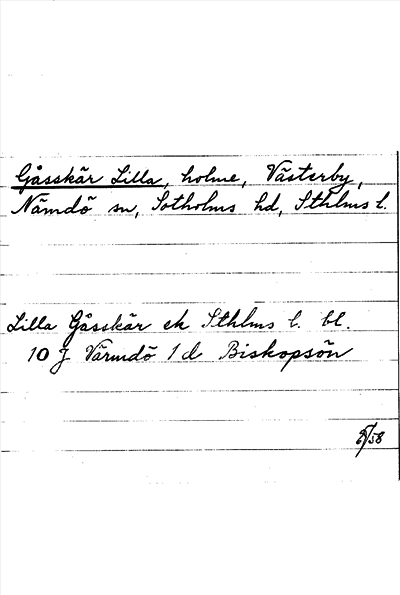 Gåsskär Lilla, holme, Västerby,
Nämdö sn, Sotholms hd, Sthlms l.
Lilla Gåsskär ek Sthlms l. bl.
10 J Värmdö 1 d Biskopsön
/58